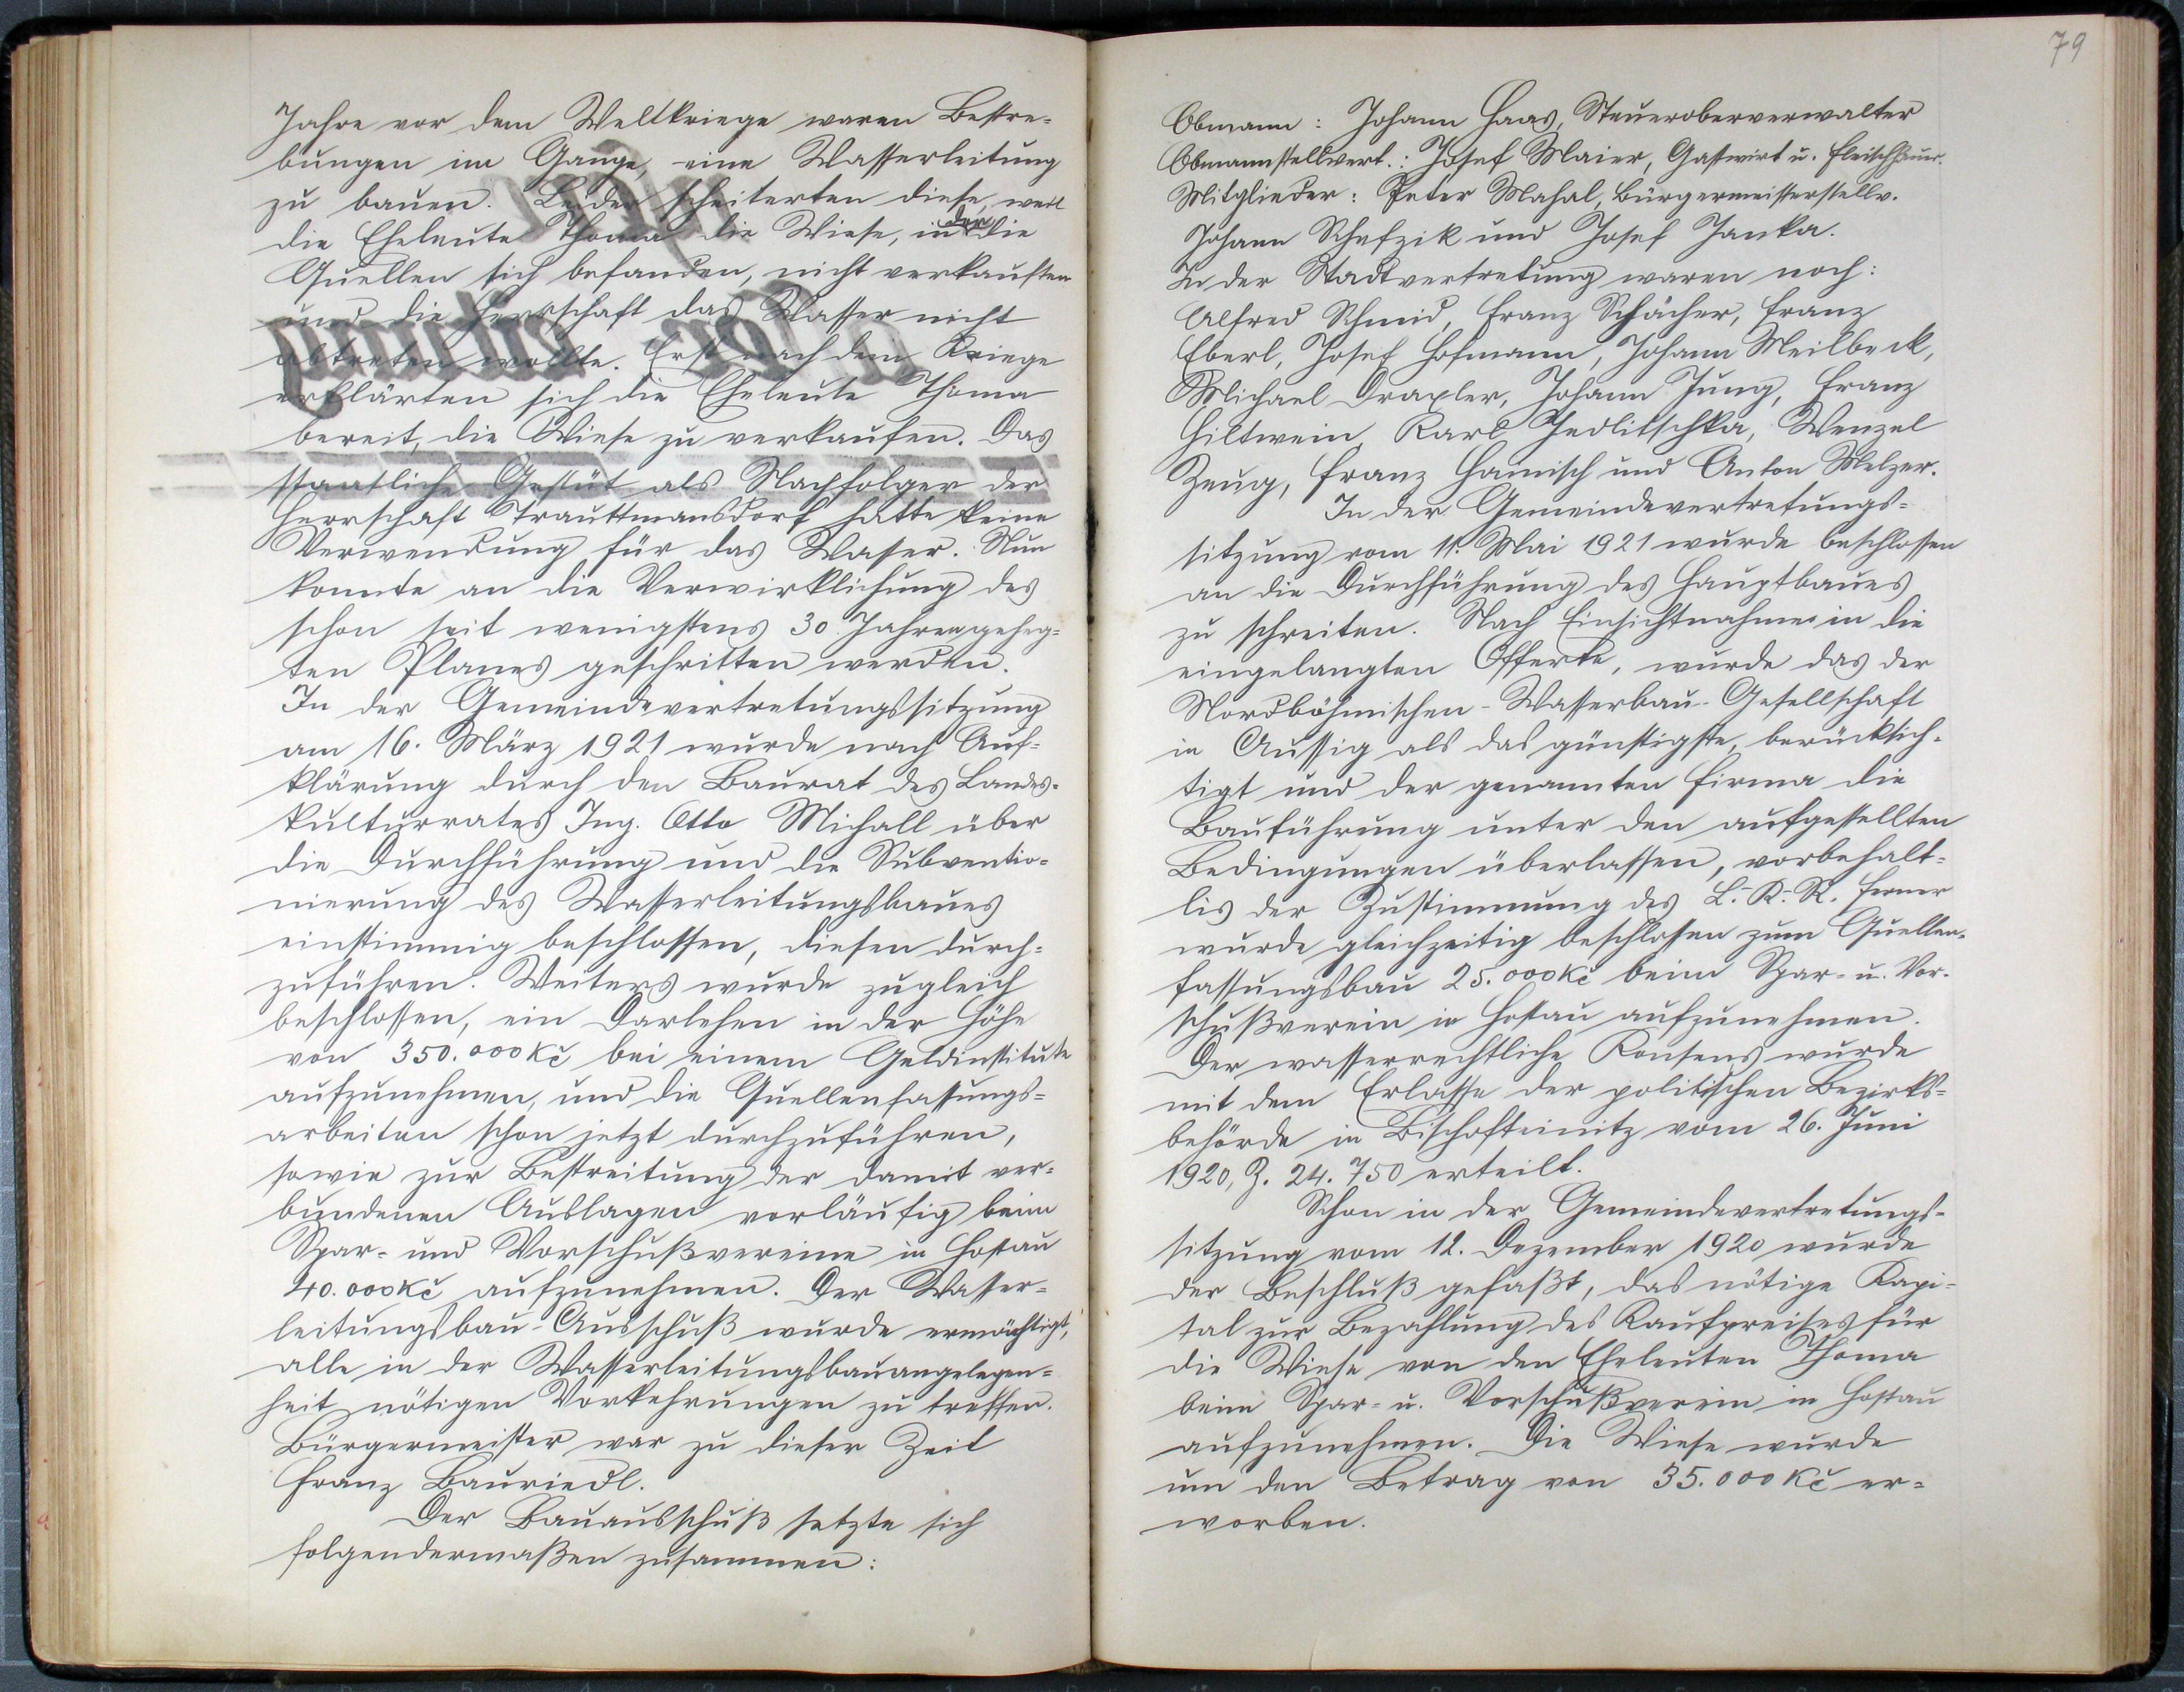 Jahre vor dem Weltkriege waren Bestre-
bungen im Gange, eine Wasserleitung
zu bauen. Leider scheiterten diese, weil
die Eheleute Thoma die Wiese, in der die
Quellen sich befanden, nicht verkauften
und die Herrschaft das Wasser nicht
abtreten wollte. Erst nach dem Kriege
erklärten sich die Eheleute Thoma
bereit, die Wiese zu verkaufen. Das
staatliche Gestüt als Nachfolger der
Herrschaft Trauttmansdorf hatte keine
Verwendung für das Waser. Nun
konnte an die Verwirklichung des
schon seit wenigstens 30 Jahren geheg-
ten Planes geschritten werden.
In der Gemeindevertretungssitzung
am 16. März 1921 wurde nach Auf-
klärung durch den Baurat des Landes-
kulturrates Ing. Otto Michall über
die Durchführung und die Subventio-
nierung des Wasserleitungsbaues
einstimmig beschlossen, diesen durch-
zuführen. Weiters wurde zugleich
beschlossen, ein Darlehen in der Höhe
von 350.000 Kč bei einem Geldinstitute
aufzunehmen, und die Quellenfassungs-
arbeiten schon jetzt durchzuführen,
sowie zur Bestreitung der damit ver-
bundenen Auslagen vorläufig beim
Spar- und Vorschußvereine in Hostau
40.000 Kč aufzunehmen. Der Wasser-
leitungsbau-Ausschuß wurde ermächtigt,
alle in der Wasserleitungsbauangelegen-
heit nötigen Vorkehrungen zu treffen.
Bürgermeister war zu dieser Zeit
Franz Bauriedl.
Der Bauausschuß setzte sich
folgendermaßen zusammen:
79
Obmann: Johann Haas, Steueroberverwalter
Obmannstellvert.: Josef Maier, Gastwirt u. Fleischhauer.
Mitglieder: Peter Mahal, Bürgermeisterstellv.
Johann Schefzik und Josef Janka.
In der Stadtvertretung waren noch:
Alfred Schmid, Franz Schächer, Franz
Eberl, Josef Hofmann, Johann Meilbeck,
Michael Draxler, Johann Jung, Franz
Hiltwein, Karl Jedlitschka, Wenzel
Zeug, Franz Hamisch und Anton Melzer.
In der Gemeindevertretungs-
sitzung vom 11. Mai 1921 wurde beschlossen
an die Durchführung des Hauptbaues
zu schreiten. Nach Einsichtnahme in die
eingelangten Offerte, wurde das der
Nordböhmischen-Wasserbau-Gesellschaft
in Aussig als das günstigste, berücksich-
tigt und der genannten Firma die
Bauführung unter den aufgestellten
Bedingungen überlassen, vorbehalt-
lis der Zustimmung des L.-K.-R. Ferner
wurde gleichzeitig beschlossen zum Quellen-
fassungsbau 25.000 Kč beim Spar- u. Vor-
schußverein in Hostau aufzunehmen.
Der wasserrechtliche Konsens wurde
mit dem Erlasse der politischen Bezirks-
behörde in Bischofteinitz vom 26. Juni
1920, Z. 24.750 erteilt.
Schon in der Gemeindevertretungs-
sitzung vom 12. Dezember 1920 wurde
der Beschluß gefaßt, das nötige Kapi-
tal zur Bezahlung des Kaufpreises für
die Wiese von den Eheleuten Thoma
beim Spar- u. Vorschußverein in Hostau
aufzunehmen. Die Wiese wurde
um den Betrag von 35.000 Kč er-
worben.